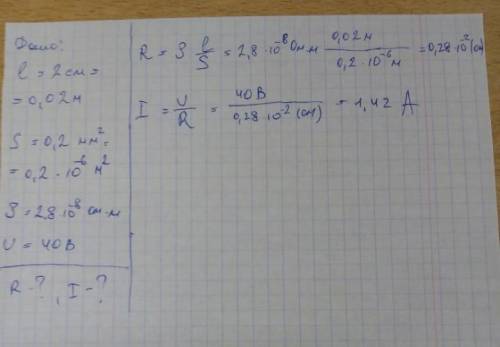 Дано:
l = 2 см =
= 0,02 м
S = 0,2 мм² =
= 0,2 · 10⁻⁶ м²
ρ = 2,8 · 10⁻⁸ Ом · м
U = 40 В
R - ? , I - ?
R = ρ l/S = 2,8 · 10⁻⁸ Ом·м 0,02 м / 0,2 · 10⁻⁶ м = 0,28 · 10⁻² (Ом)
I = U/R = 40 В / 0,28 · 10⁻² (Ом) = 1,42 А